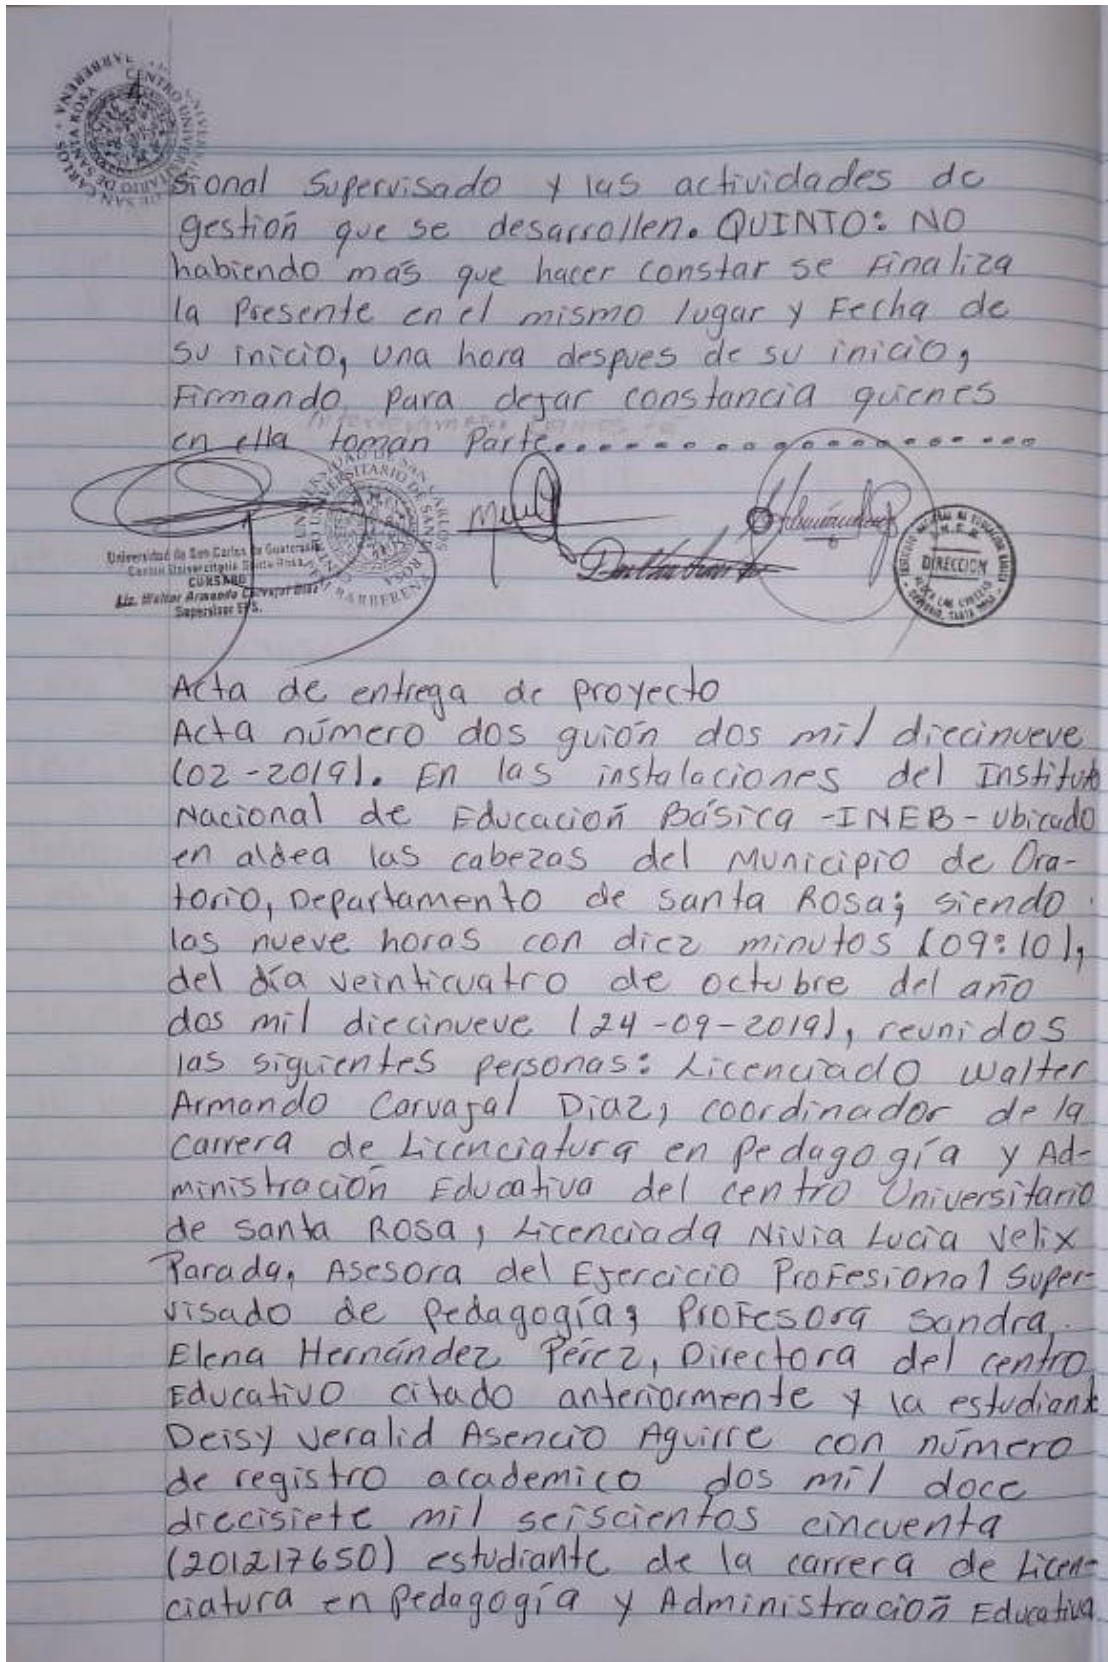 CENTRO UNIVERSITARIO DE SANTA ROSA
SAN CARLOS
BARBERENA
sional Supervisado y las actividades de
gestión que se desarrollen. QUINTO: NO
habiendo más que hacer constar se Finaliza
la Presente en el mismo lugar y Fecha de
su inicio, una hora despues de su inicio,
Firmando para dejar constancia quienes
en ella toman Parte....................
Universidad de San Carlos de Guatemala
Centro Universitario Santa Rosa
CUNSARO
Lic. Walter Armando Carvajal Díaz
Supervisor EPS.
DIRECCION
Acta de entrega de proyecto
Acta número dos guión dos mil diecinueve
(02-2019). En las instalaciones del Instituto
Nacional de Educación Básica -INEB- ubicado
en aldea las cabezas del Municipio de Ora-
torio, Departamento de Santa Rosa; siendo
las nueve horas con diez minutos (09:10),
del día veinticuatro de octubre del año
dos mil diecinueve (24-09-2019), reunidos
las siguientes personas: Licenciado Walter
Armando Carvajal Díaz, coordinador de la
Carrera de Licenciatura en Pedagogía y Ad-
ministración Educativa del centro Universitario
de Santa Rosa, Licenciada Nivia Lucia Velix
Parada, Asesora del Ejercicio Profesional Super-
visado de Pedagogía; Profesora Sandra
Elena Hernández Pérez, Directora del centro
Educativo citado anteriormente y la estudiante
Deisy Veralid Asencio Aguirre con número
de registro academico dos mil doce
diecisiete mil seiscientos cincuenta
(201217650) estudiante de la carrera de Licen-
ciatura en Pedagogía y Administración Educativa